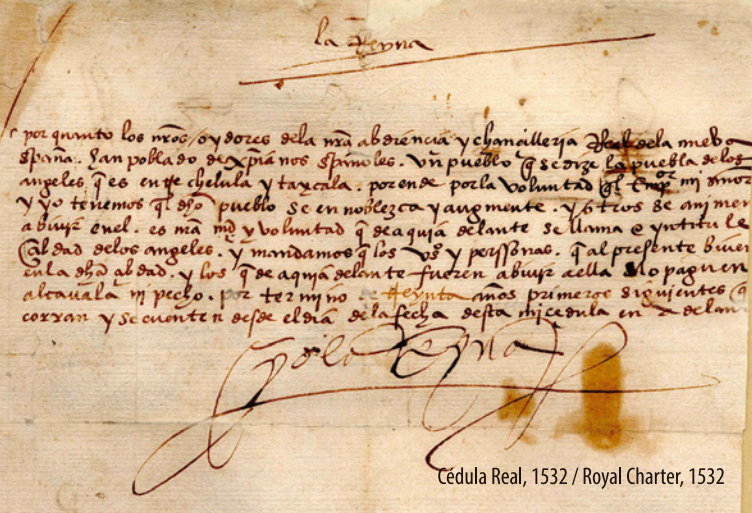 la Reyna
por quanto los nr̃os oydores dela nr̃a abdiencia y chancilleria Real dela nueba
España. han poblado de xp̃ia nos españoles. vn pueblo q̃ se dize la puebla delos
angeles q̃ es entre chelula y taxcala. por ende por la voluntad q̃l emp̃or mi señor
y yo tenemos q̃l dh̃o pueblo se en noblezca y augmente. y otros se animen
abivir enel. es nr̃a mr̃d y voluntad q̃ de aquia delante se llame e yntitule
Cibdad delos angeles. y mandamos q̃ los vos y perssonas. q̃ al presente biven
enla dh̃a cibdad. y los q̃ de aquia delante fueren abivir aella no paguen
alcavala ni pecho. por termino de treynta años primeros siguientes q̃
corran y se cuenten desde el dia dela fecha desta mi cedula en adelante
yo la Reyna
Cédula Real, 1532 / Royal Charter, 1532